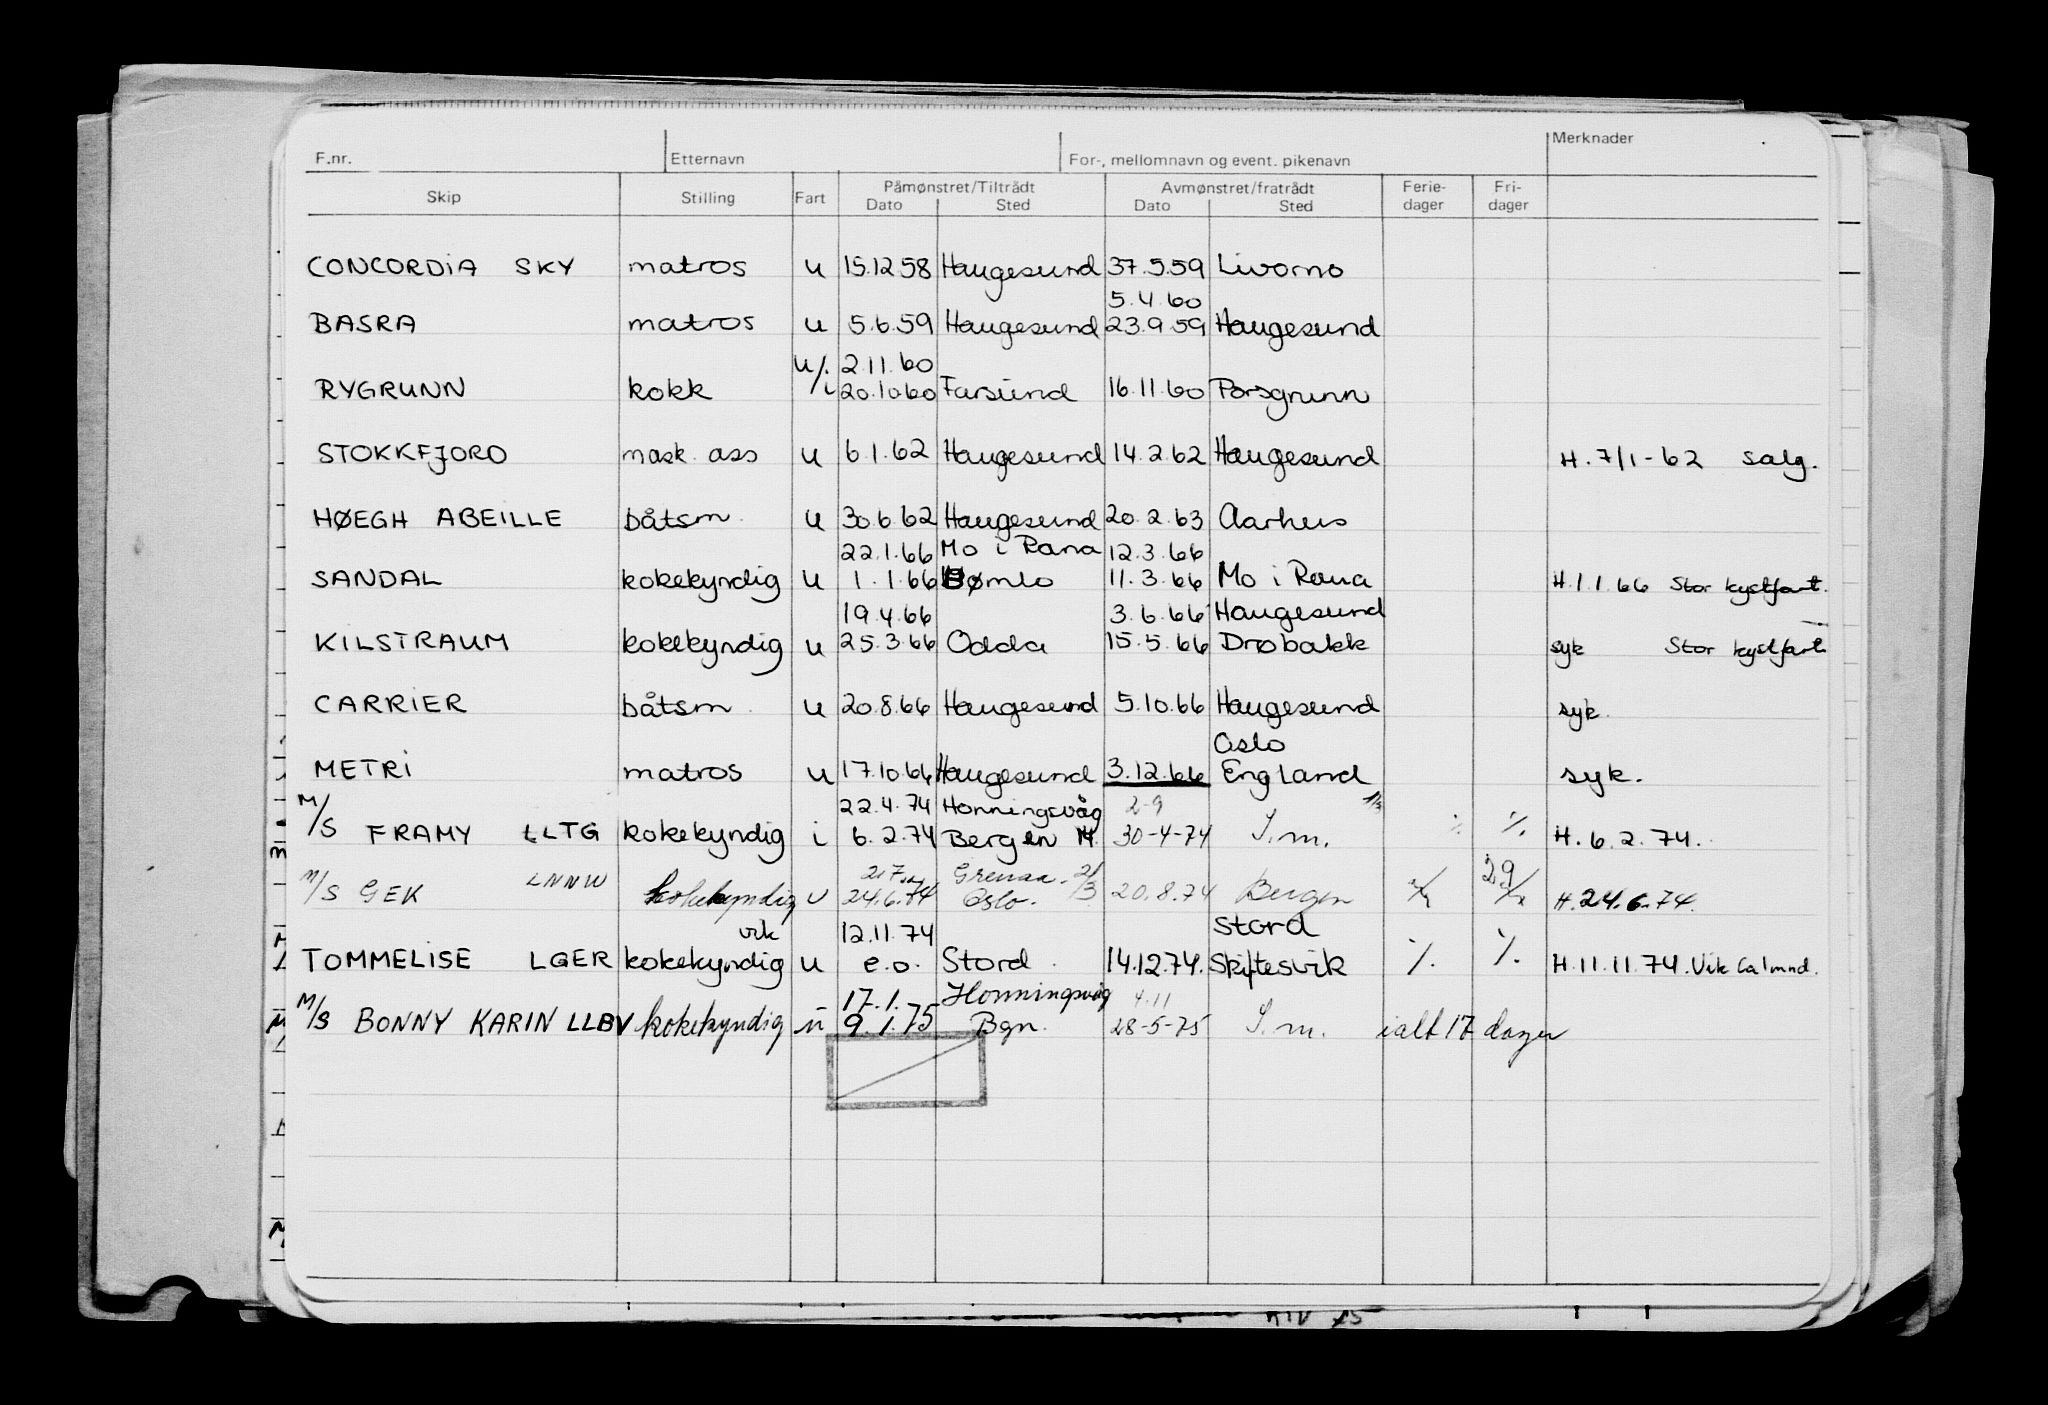 F.nr. Etternavn For-, mellomnavn og event. pikenavn Merknader
Skip Stilling Fart Påmønstret/Tiltrådt Avmønstret/fratrådt Ferie- Fri-
Dato Sted Dato Sted dager dager
CONCORDIA SKY matros u 15.12.58 Haugesund 37.5.59 Livorno
5.4.60
BASRA matros u 5.6.59 Haugesund 23.9.59 Haugesund
u/. 2.11.60
RYGRUNN kokk /i 20.10.60 Farsund 16.11.60 Porsgrunn
STOKKFJORD mask. ass u 6.1.62 Haugesund 14.2.62 Haugesund H. 7/1-62 Salg.
HØEGH ABEILLE båtsm. u 30.6.62 Haugesund 20.2.63 Aarhus
22.1.66 Mo i Rana 12.3.66
SANDAL kokekyndig u 1.1.66 Bømlo 11.3.66 Mo i Rana H.1.1.66 Stor kystfart.
19.4.66 3.6.66 Haugesund
KILSTRAUM kokekyndig u 25.3.66 Odda 15.5.66 Drøbakk syk Stor kystfart
CARRIER båtsm. u 20.8.66 Haugesund 5.10.66 Haugesund syk.
Oslo
METRI matros u 17.10.66 Haugesund 3.12.66 England syk.
22.4.74 Honningsvåg 2-9 1/3
M/S FRAMY LLTG kokekyndig i 6.2.74 Bergen 30-4-74 S.m. % % H.6.2.74.
Grenaa 2/3 29
M/S GEK LNNW kokekyndig u 24.6.74 Oslo. 20.8.74 Bergen H.24.6.74.
vik 12.11.74 Stord
TOMMELISE LGER kokekyndig u e.o. Stord. 14.12.74. Skiftesvik % % H.11.11.74. Vik
17.1. Honningsvåg 4.11
M/S BONNY KARIN LLBV kokekyndig u 9.1.75 Bgn. 28-5-75 S.m. ialt 17 dager